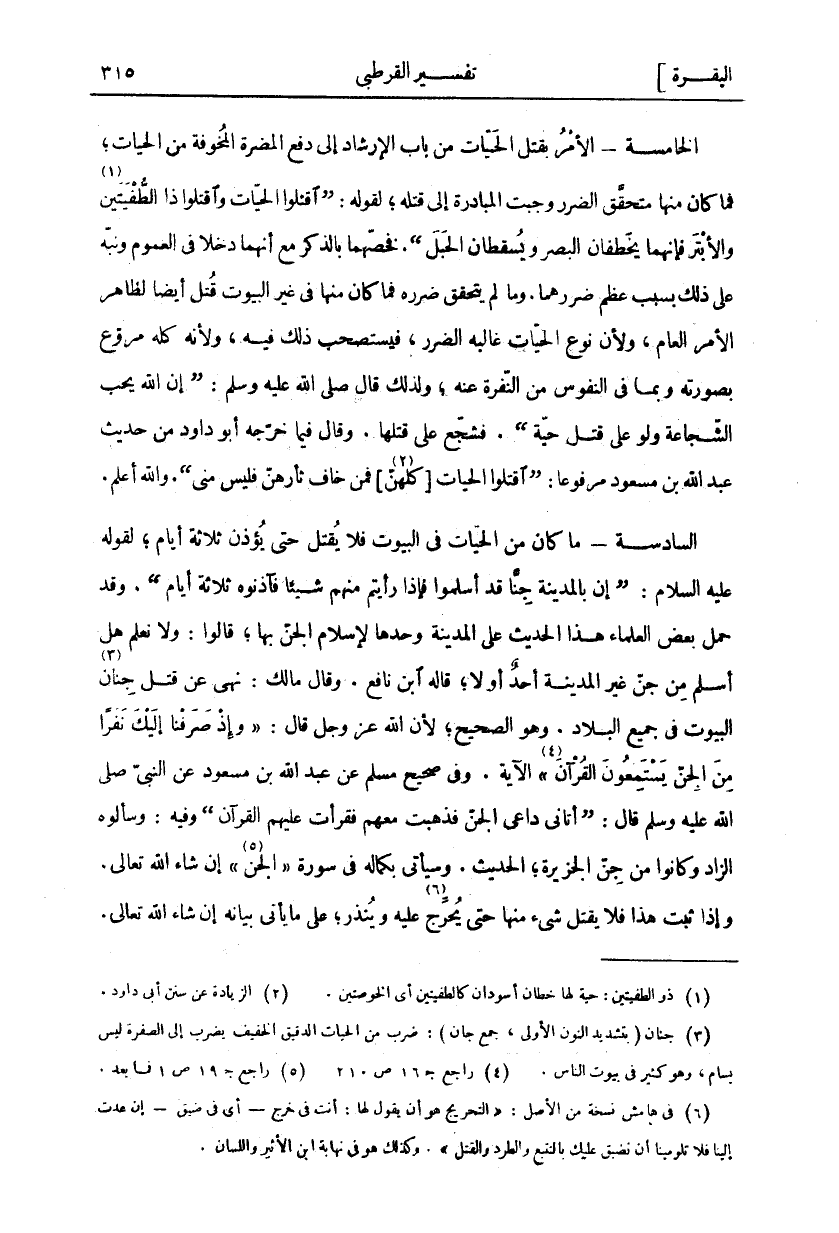 البقــرة ]
تفســير القرطبى
٣١٥
الخامســة – الأَمْرُ بقتل الحَيّات من باب الإرشاد إلى دفع المضرة المُخوفة من الحيات؛
فما كان منها متحقَّق الضرر وجبت المبادرة إلى قتله ؛ لقوله : ”اَقتلوا الحيّات وآقتلوا ذا الطُّفْيَتَين (١)
والأَبْتَر فإنهما يَخْطفان البصر ويُسقطان الحَبَل“. فخصّهما بالذكر مع أنهما دخلا فى العموم ونبّه
على ذلك بسبب عظم ضررهما. وما لم يتحقق ضرره فما كان منها فى غير البيوت قُتل أيضا لظاهر
الأمر العام ، ولأن نوع الحيّات غالبه الضرر ، فيستصحب ذلك فيــه ، ولأنه كله مروّع
بصورته وبمــا فى النفوس من النّفرة عنه ؛ ولذلك قال صلى الله عليه وسلم : ” إن الله يحب
الشّــجاعة ولو على قتــل حيّة “ . فشجّع على قتلها . وقال فيما خرّجه أبو داود من حديث
عبد الله بن مسعود مرفوعا: ”اَقتلوا الحيات [كلهنّ] (٢) فمن خاف ثأرهنّ فليس منى“. والله أعلم.
السادســة – ما كان من الحيّات فى البيوت فلا يُقتل حتى يُؤذن ثلاثة أيام ؛ لقوله
عليه السلام : ” إن بالمدينة جِنًّا قد أسلموا فإذا رأيتم منهم شــيئا فآذنوه ثلاثة أيام “ . وقد
حمل بعض العلماء هــذا الحديث على المدينة وحدها لإسلام الجنّ بها ؛ قالوا : ولا نعلم هل
أســلم مِن جنّ غير المدينــة أحدٌ أو لا؛ قاله اَبن نافع . وقال مالك : نهى عن قتــل جِنان (٣)
البيوت فى جميع البــلاد . وهو الصحيح؛ لأن الله عز وجل قال : « وإذْ صَرَفْنا إلَيْكَ نَفَرًا
مِنَ الجِنّ يَسْتَمِعُونَ القُرْآنَ » (٤) الآية . وفى صحيح مسلم عن عبد الله بن مسعود عن النبىّ صلى
الله عليه وسلم قال : ” أتانى داعى الجنّ فذهبت معهم فقرأت عليهم القرآن “ وفيه : وسألوه
الزاد وكانوا من جِنّ الجزيرة؛ الحديث . وسيأتى بكماله فى سورة « الجنّ » (٥) إن شاء الله تعالى.
وإذا ثبت هذا فلا يقتل شىء منها حتى يُحَرَّج (٦) عليه ويُنذر؛ على ما يأتى بيانه إن شاء الله تعالى.
(١) ذو الطفيتين : حية لها خطان أسودان كالطفيتين أى الخوصتين . (٢) الزيادة عن سنن أبى داود .
(٣) جنان ( بتشديد النون الأولى ، جمع جان ) : ضرب من الحيات الدقيق الخفيف يضرب إلى الصفرة ليس
بسام ، وهو كثير فى بيوت الناس . (٤) راجع جـ ١٦ ص ٢١٠ (٥) راجع جـ ١٩ ص ١ فــا بعد .
(٦) فى هامش نسخة من الأصل : « التحريج هو أن يقول لها : أنت فى حرج — أى فى ضيق — إن عدت
إلينا فلا تلومينا أن نضيق عليك بالتتبع والطرد والقتل » . وكذلك هو فى نهاية ابن الأثير واللسان .